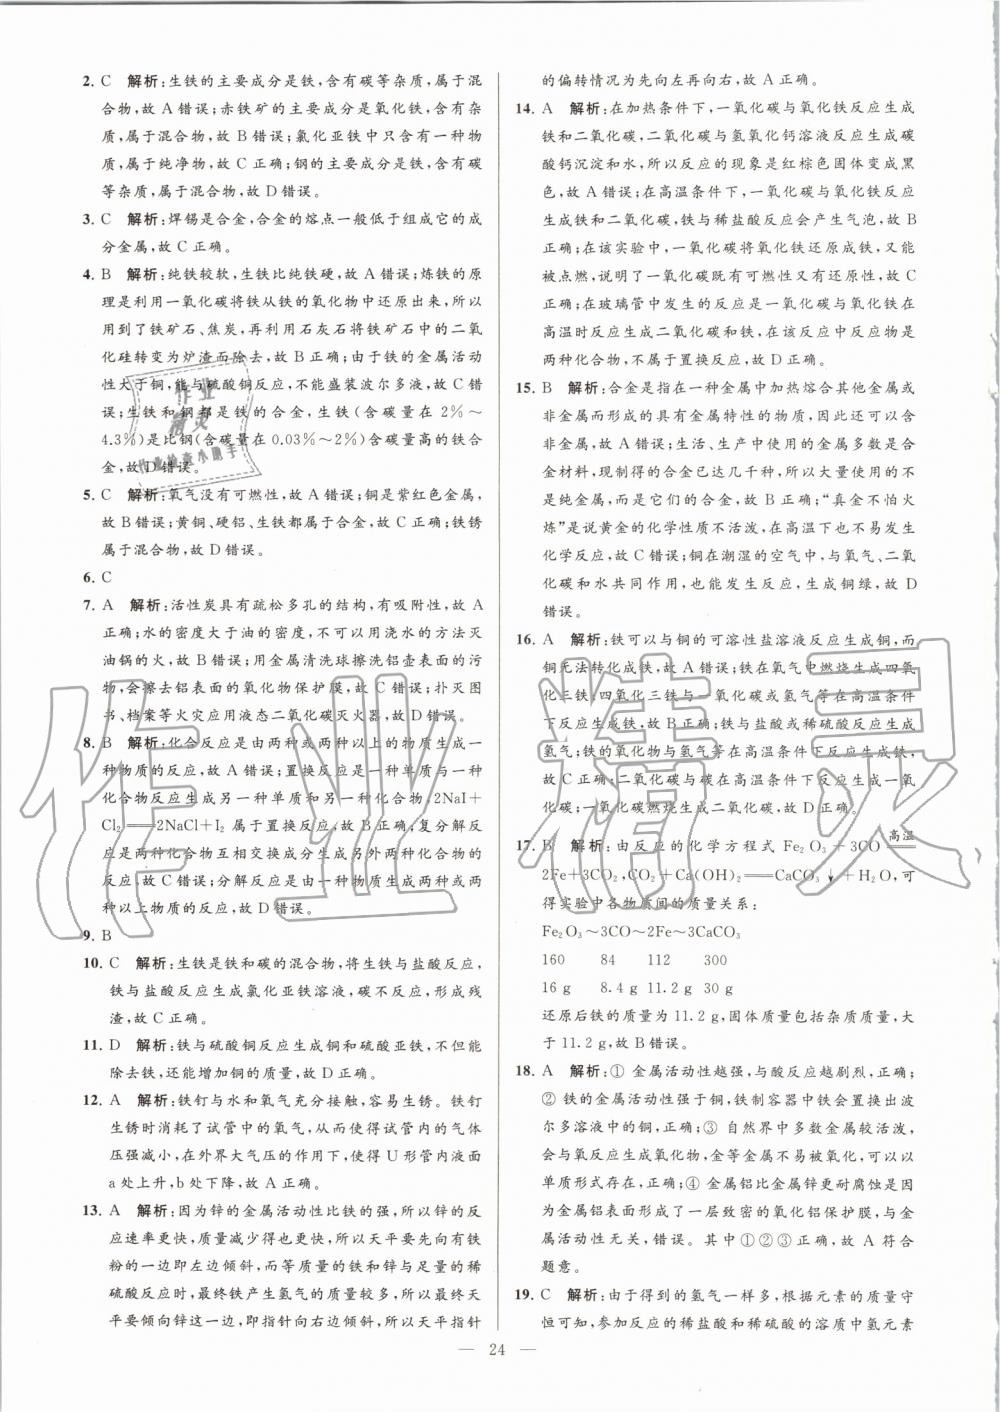 2. C　解析:生铁的主要成分是铁,含有碳等杂质,属于混
合物,故 A 错误;赤铁矿的主要成分是氧化铁,含有杂
质,属于混合物,故 B 错误;氯化亚铁中只含有一种物
质,属于纯净物,故 C 正确;钢的主要成分是铁,含有碳
等杂质,属于混合物,故 D 错误。
3. C　解析:焊锡是合金,合金的熔点一般低于组成它的成
分金属,故 C 正确。
4. B　解析:纯铁较软,生铁比纯铁硬,故 A 错误;炼铁的原
理是利用一氧化碳将铁从铁的氧化物中还原出来,所以
用到了铁矿石、焦炭,再利用石灰石将铁矿石中的二氧
化硅转变为炉渣而除去,故 B 正确;由于铁的金属活动
性大于铜,能与硫酸铜反应,不能盛装波尔多液,故 C 错
误;生铁和钢都是铁的合金,生铁(含碳量在 2%～
4.3%)是比钢(含碳量在 0.03%～2%)含碳量高的铁合
金,故 D 错误。
5. C　解析:氧气没有可燃性,故 A 错误;铜是紫红色金属,
故 B 错误;黄铜、硬铝、生铁都属于合金,故 C 正确;铁锈
属于混合物,故 D 错误。
6. C
7. A　解析:活性炭具有疏松多孔的结构,有吸附性,故 A
正确;水的密度大于油的密度,不可以用浇水的方法灭
油锅的火,故 B 错误;用金属清洗球擦洗铝壶表面的污
物,会擦去铝表面的氧化物保护膜,故 C 错误;扑灭图
书、档案等火灾应用液态二氧化碳灭火器,故 D 错误。
8. B　解析:化合反应是由两种或两种以上的物质生成一
种物质的反应,故 A 错误;置换反应是一种单质与一种
化合物反应生成另一种单质和另一种化合物,2NaI+
Cl₂══2NaCl+I₂ 属于置换反应,故 B 正确;复分解反
应是两种化合物互相交换成分生成另外两种化合物的
反应,故 C 错误;分解反应是由一种物质生成两种或两
种以上物质的反应,故 D 错误。
9. B
10. C　解析:生铁是铁和碳的混合物,将生铁与盐酸反应,
铁与盐酸反应生成氯化亚铁溶液,碳不反应,形成残
渣,故 C 正确。
11. D　解析:铁与硫酸铜反应生成铜和硫酸亚铁,不但能
除去铁,还能增加铜的质量,故 D 正确。
12. A　解析:铁钉与水和氧气充分接触,容易生锈。铁钉
生锈时消耗了试管中的氧气,从而使得试管内的气体
压强减小,在外界大气压的作用下,使得 U 形管内液面
a 处上升,b 处下降,故 A 正确。
13. A　解析:因为锌的金属活动性比铁的强,所以锌的反
应速率更快,质量减少得也更快,所以天平要先向有铁
粉的一边即左边倾斜,而等质量的铁和锌与足量的稀
硫酸反应时,最终铁产生氢气的质量较多,所以最终天
平要倾向锌这一边,即指针向右边倾斜,所以天平指针
的偏转情况为先向左再向右,故 A 正确。
14. A　解析:在加热条件下,一氧化碳与氧化铁反应生成
铁和二氧化碳,二氧化碳与氢氧化钙溶液反应生成碳
酸钙沉淀和水,所以反应的现象是红棕色固体变成黑
色,故 A 错误;在高温条件下,一氧化碳与氧化铁反应
生成铁和二氧化碳,铁与稀盐酸反应会产生气泡,故 B
正确;在该实验中,一氧化碳将氧化铁还原成铁,又能
被点燃,说明了一氧化碳既有可燃性又有还原性,故 C
正确;在玻璃管中发生的反应是一氧化碳与氧化铁在
高温时反应生成二氧化碳和铁,在该反应中反应物是
两种化合物,不属于置换反应,故 D 正确。
15. B　解析:合金是指在一种金属中加热熔合其他金属或
非金属而形成的具有金属特性的物质,因此还可以含
非金属,故 A 错误;生活、生产中使用的金属多数是合
金材料,现制得的合金已达几千种,所以大量使用的不
是纯金属,而是它们的合金,故 B 正确;“真金不怕火
炼”是说黄金的化学性质不活泼,在高温下也不易发生
化学反应,故 C 错误;铜在潮湿的空气中,与氧气、二氧
化碳和水共同作用,也能发生反应,生成铜绿,故 D
错误。
16. A　解析:铁可以与铜的可溶性盐溶液反应生成铜,而
铜无法转化成铁,故 A 错误;铁在氧气中燃烧生成四氧
化三铁;四氧化三铁与一氧化碳或氢气等在高温条件
下反应生成铁,故 B 正确;铁与盐酸或稀硫酸反应生成
氢气;铁的氧化物与氢气等在高温条件下反应生成铁,
故 C 正确;二氧化碳与碳在高温条件下反应生成一氧
化碳;一氧化碳燃烧生成二氧化碳,故 D 正确。
17. B　解析:由反应的化学方程式 Fe₂O₃+3CO══高温
2Fe+3CO₂,CO₂+Ca(OH)₂══CaCO₃↓+H₂O,可
得实验中各物质间的质量关系:
Fe₂O₃～3CO～2Fe～3CaCO₃
160　84　112　300
16 g　8.4 g　11.2 g　30 g
还原后铁的质量为 11.2 g,固体质量包括杂质质量,大
于 11.2 g,故 B 错误。
18. A　解析:① 金属活动性越强,与酸反应越剧烈,正确;
② 铁的金属活动性强于铜,铁制容器中铁会置换出波
尔多溶液中的铜,正确;③ 自然界中多数金属较活泼,
会与氧反应生成氧化物,金等金属不易被氧化,可以以
单质形式存在,正确;④ 金属铝比金属锌更耐腐蚀是因
为金属铝表面形成了一层致密的氧化铝保护膜,与金
属活动性无关,错误。其中①②③正确,故 A 符合
题意。
19. C　解析:由于得到的氢气一样多,根据元素的质量守
恒可知,参加反应的稀盐酸和稀硫酸的溶质中氢元素
— 24 —
作业
精灵
作业检查小助手
作业精灵